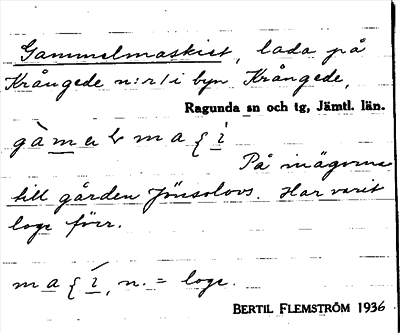 Gammelmaskist, lada på
Krångede n:r 1 i byn Krångede,
Ragunda sn och tg, Jämtl. län.
På inägorna
till gården Jönsolovs. Har varit
loge förr.
n. = loge.
BERTIL FLEMSTRÖM 1936